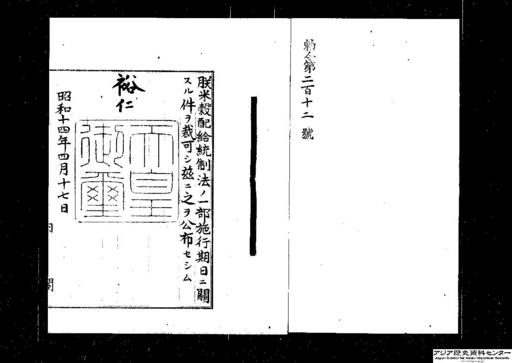 勅令第二百十二號
朕米穀配給統制法ノ一部施行期日ニ關
スル件ヲ裁可シ茲ニ之ヲ公布セシム
裕仁
天皇
御璽
昭和十四年四月十七日
内閣
アジア歴史資料センター
Japan Center for Asian Historical Records